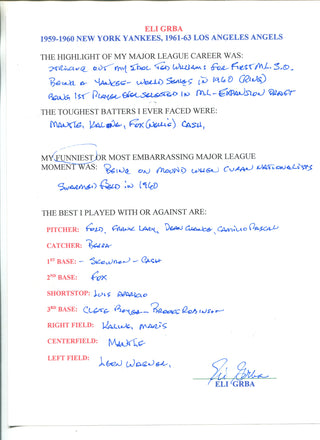 ELI GRBA
1959-1960 NEW YORK YANKEES, 1961-63 LOS ANGELES ANGELS
THE HIGHLIGHT OF MY MAJOR LEAGUE CAREER WAS:
STRIKING OUT MY IDOL TED WILLIAMS FOR FIRST ML S.O.
BEING A YANKEE - WORLD SERIES IN 1960 (RING)
BEING 1ST PLAYER EVER SELECTED IN ML - EXPANSION DRAFT
THE TOUGHEST BATTERS I EVER FACED WERE:
MANTLE, KALINE, FOX (NELLIE) CASH,
MY FUNNIEST OR MOST EMBARRASSING MAJOR LEAGUE
MOMENT WAS: BEING ON MOUND WHEN CUBAN NATIONALISTS
SWARMED FIELD IN 1960
THE BEST I PLAYED WITH OR AGAINST ARE:
PITCHER: FORD, FRANK LARY, DEAN CHANCE, CAMILIO PASCUAL
CATCHER: BERRA
1ST BASE: - SKOWRON - CASH
2ND BASE: FOX
SHORTSTOP: LUIS APARICIO
3RD BASE: CLETE BOYER - BROOKS ROBINSON
RIGHT FIELD: KALINE, MARIS
CENTERFIELD: MANTLE
LEFT FIELD: LEON WAGNER,
Eli Grba
ELI GRBA